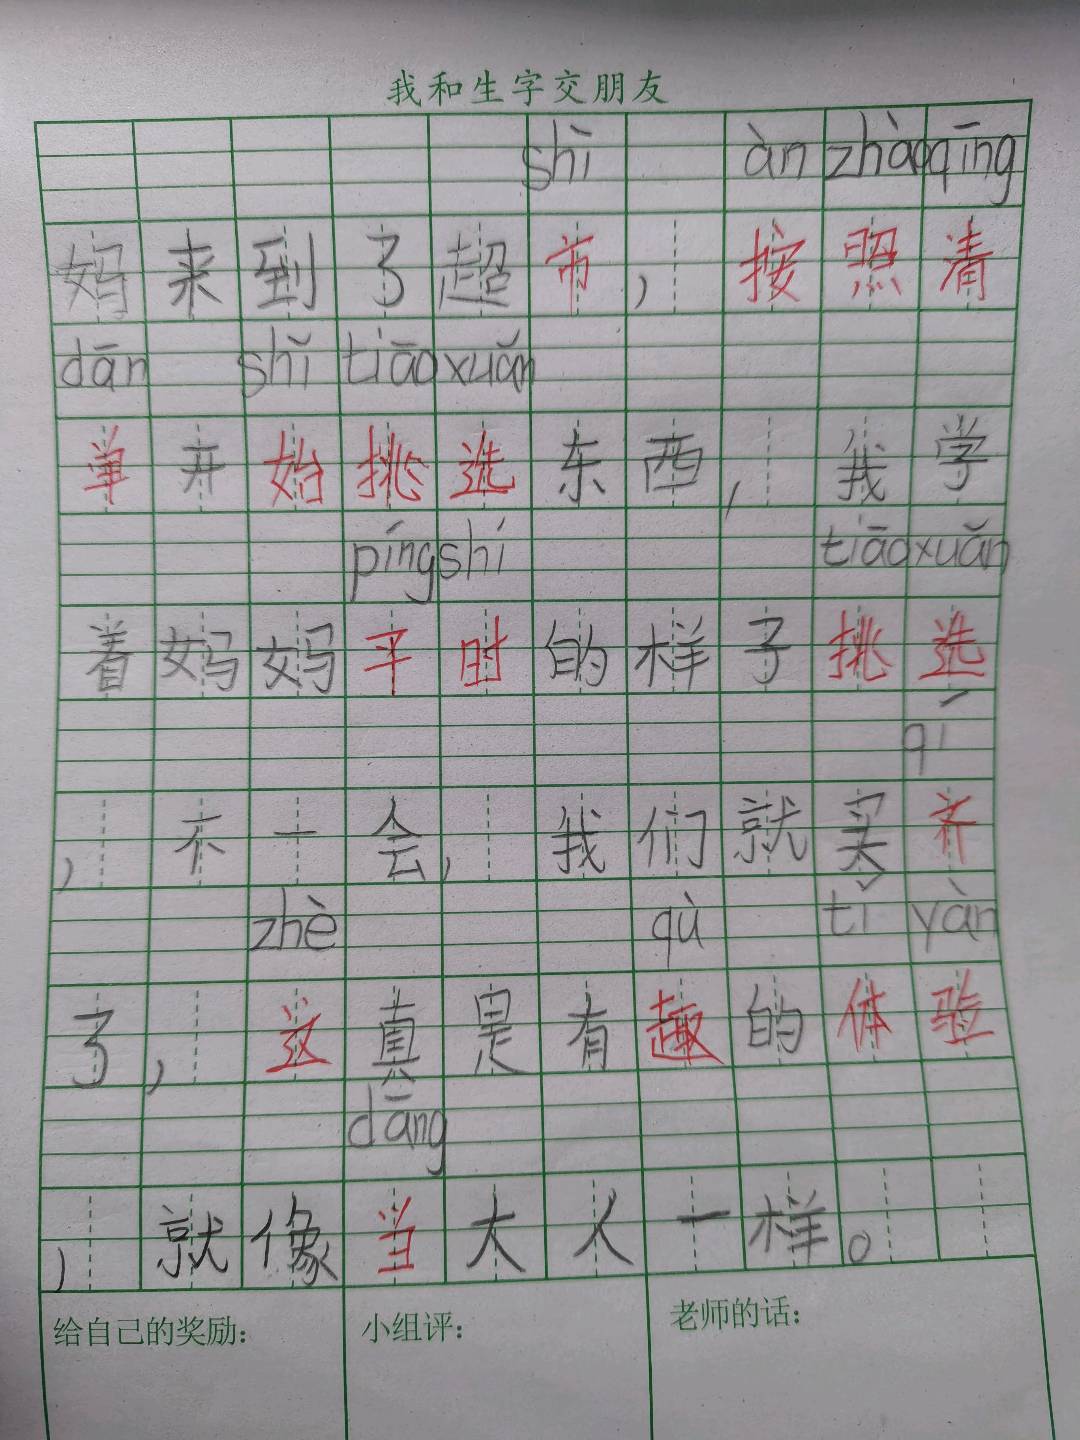 我和生字交朋友
shì àn zhào qīng
妈来到了超市，按照清
dān shǐ tiāo xuǎn
单开始挑选东西，我学
píng shí tiāo xuǎn
着妈妈平时的样子挑选
qí
，不一会，我们就买齐
zhè qù tǐ yàn
了，这真是有趣的体验
dāng
，就像当大人一样。
给自己的奖励： 小组评： 老师的话：